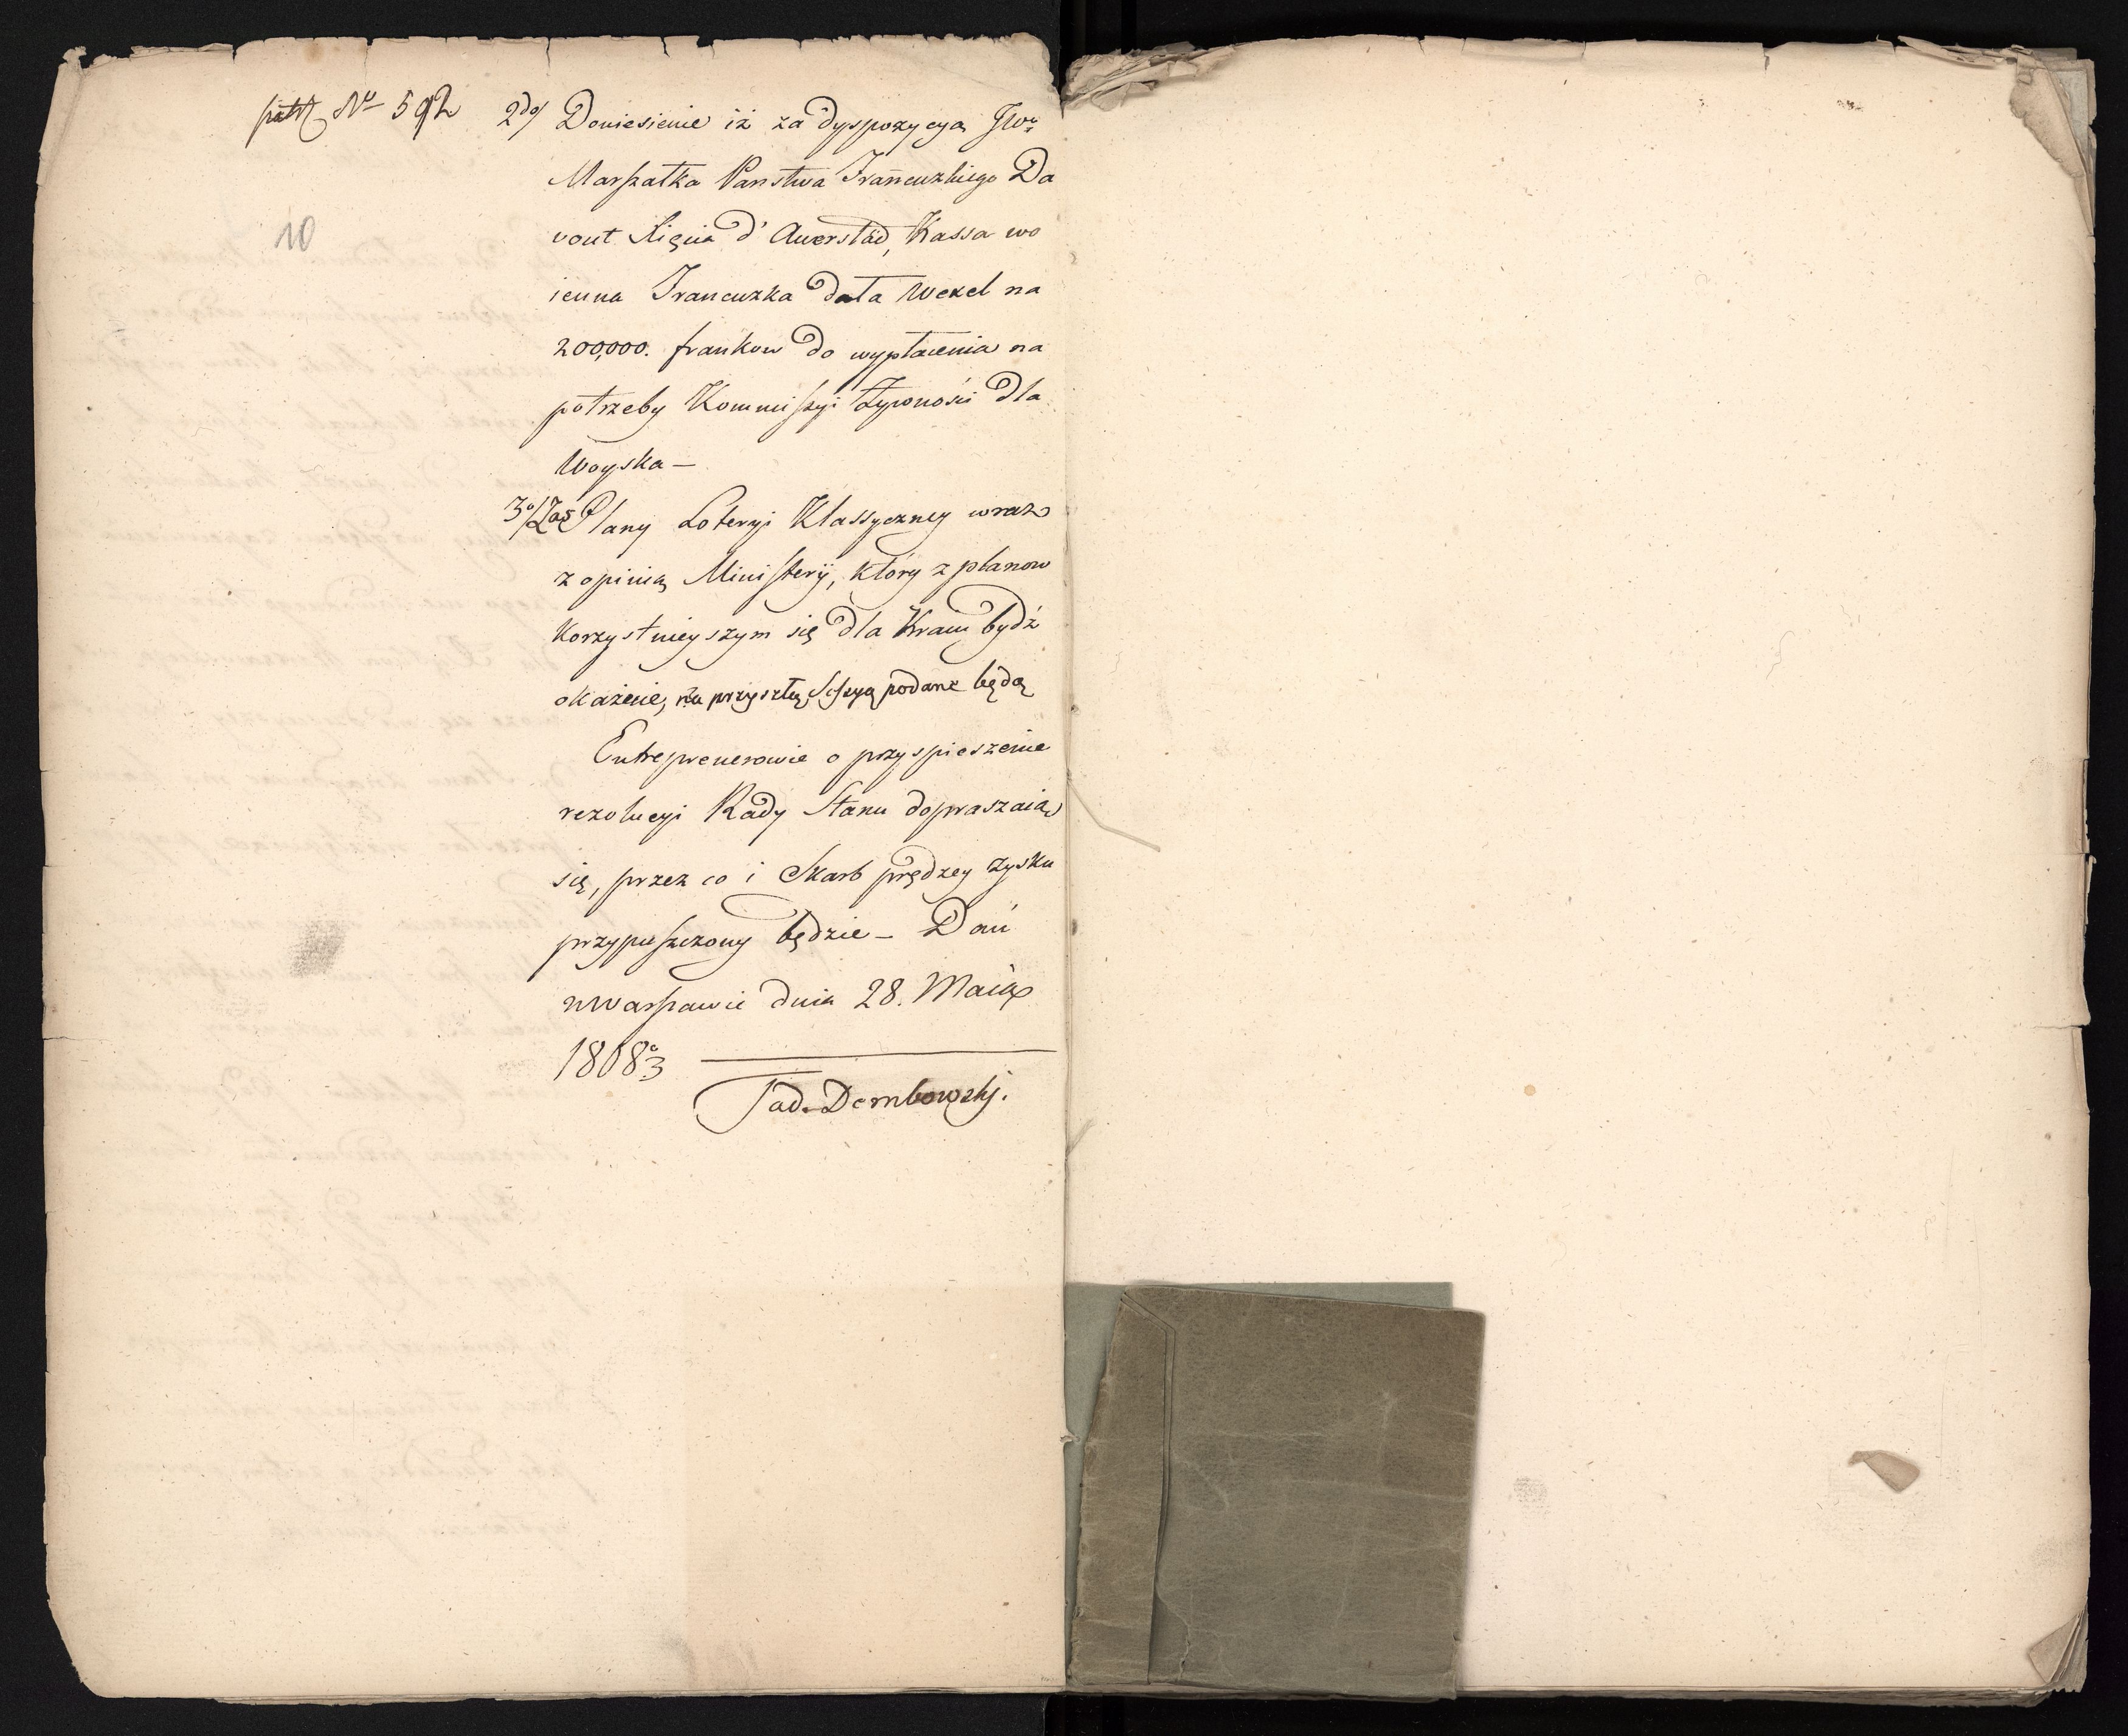 patrz No 592
10
2do/ Doniesienie iż za dyspozycyą JWo
Marszałka Panstwa Francuzkiego Da
vout Xięcia d'Auerstäd, Kassa wo
ienna Francuzka dała Wexel na
200,000. frankow do wypłacenia na
potrzeby Kommissyi Żywności dla
Woyska —
3o/ Zaś Plany Loteryi Klassyczney wraz
z opinią Ministerij, który z planow
korzystnieyszym się dla Kraiu bydź
okażenie, na przyszłą Sessyą podane będą
Entreprenerowie o przyspieszenie
rezolucyi Rady Stanu dopraszaią
się, przez co i Skarb prędzey zysku
przypuszczony będzie — Dań
w Warszawie dnia 28. Maia
1808
Tad. Dembowski.